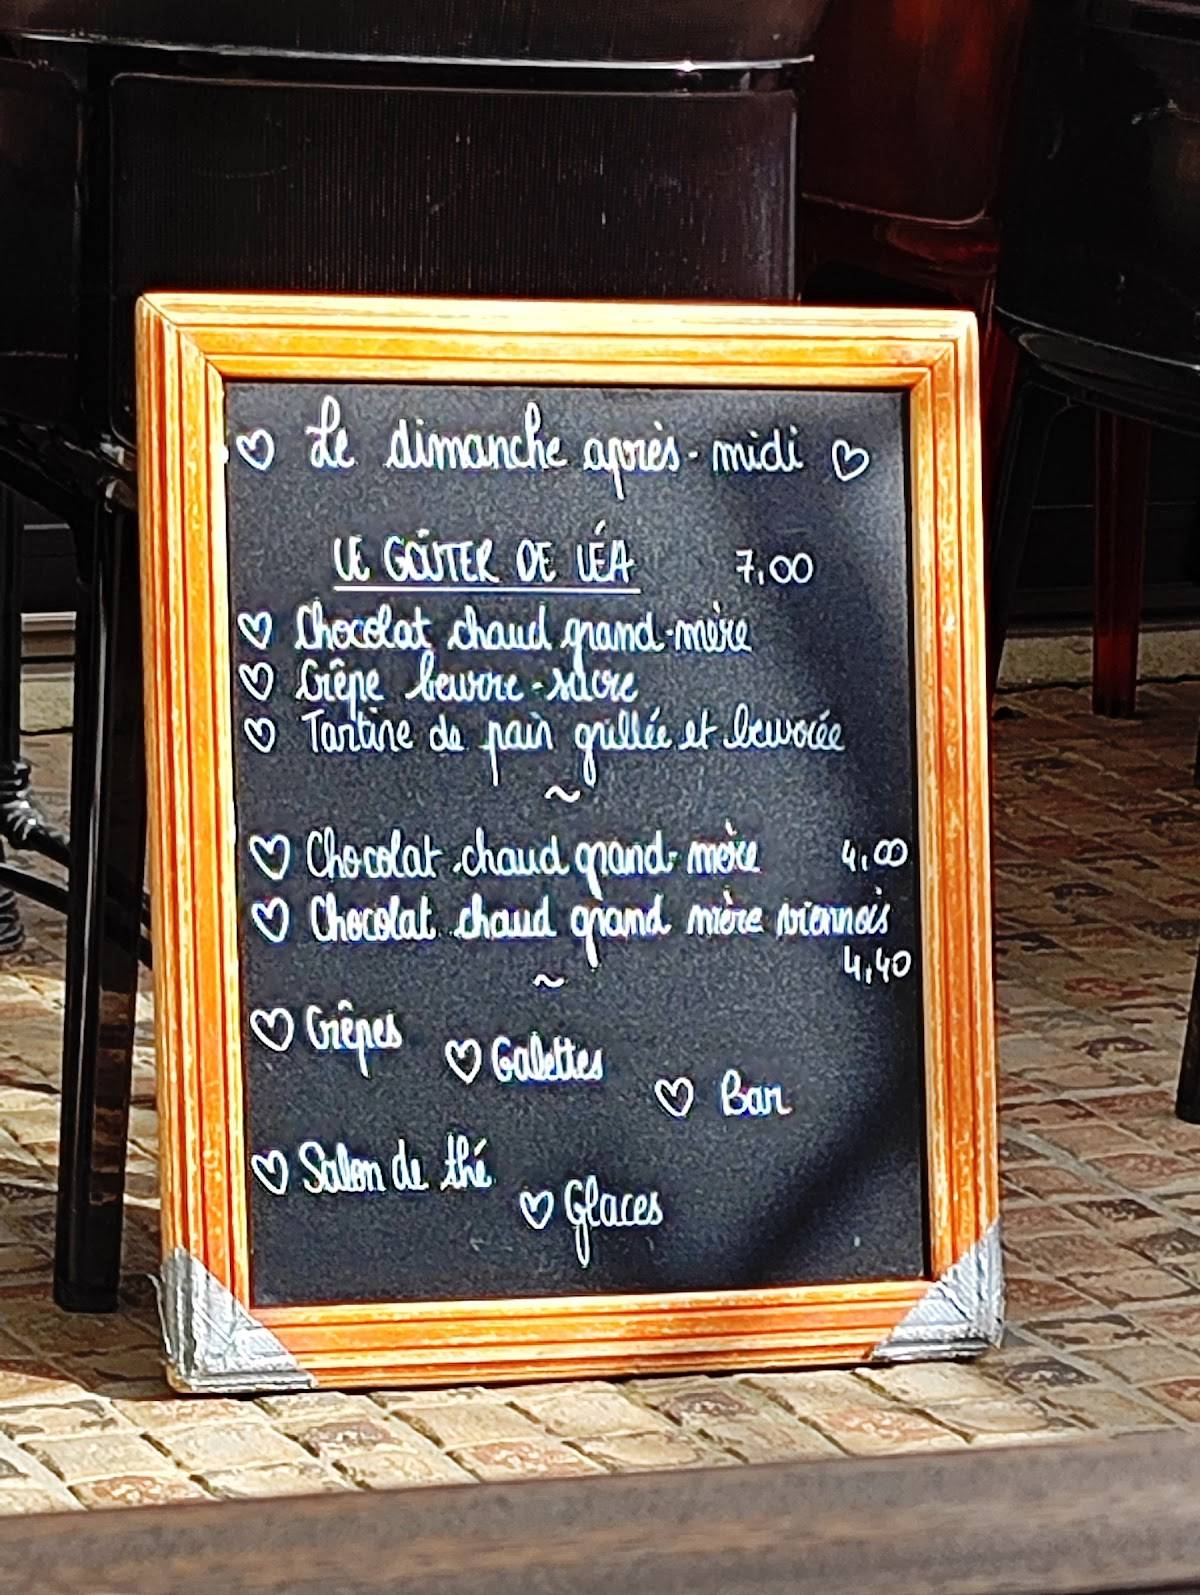 ♡ Le dimanche après-midi ♡
LE GOÛTER DE LÉA 7,00
♡ Chocolat chaud grand-mère
♡ Crêpe beurre-sucre
♡ Tartine de pain grillée et beurrée
~
♡ Chocolat chaud grand-mère 4,00
♡ Chocolat chaud grand mère viennois
4,40
~
♡ Crêpes
♡ Galettes
♡ Bar
♡ Salon de thé
♡ Glaces